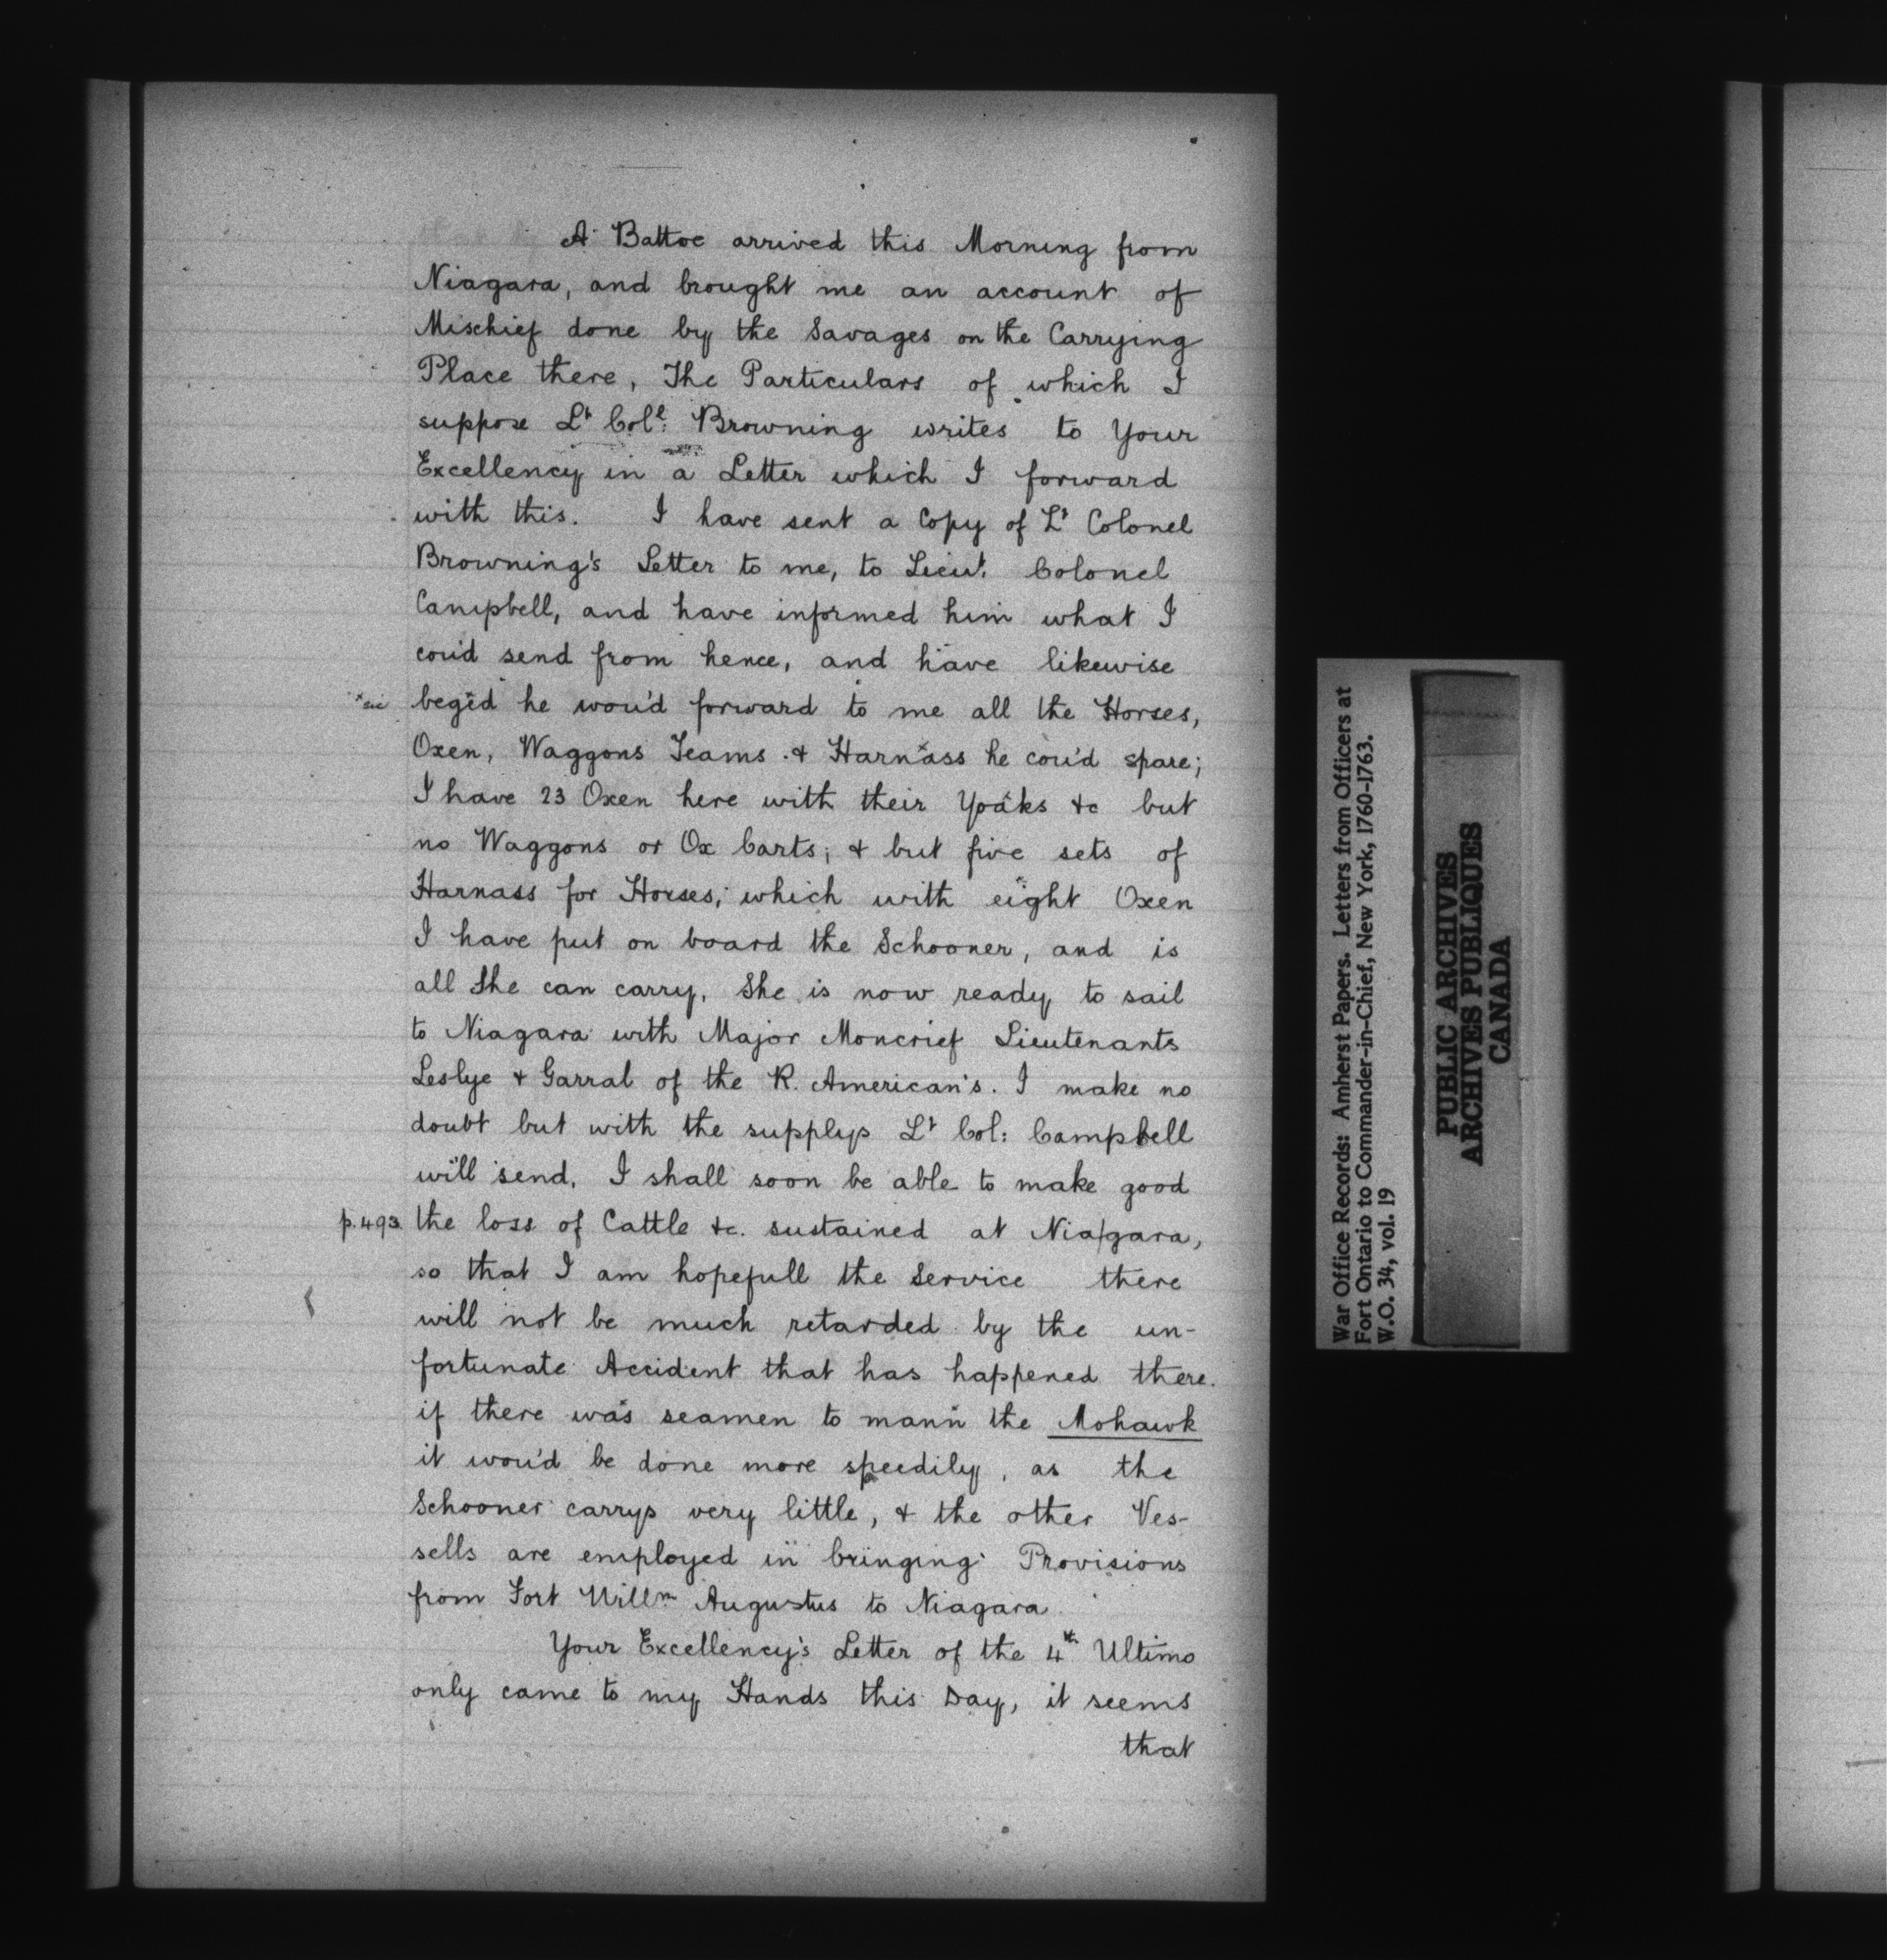 A Battoe arrived this Morning from
Niagara, and brought me an account of
Mischief done by the Savages on the Carrying
Place there, The Particulars of which I
suppose Lt Coll: Browning writes to Your
Excellency in a Letter which I forward
with this. I have sent a Copy of Lt Colonel
Browning's Letter to me, to Lieut. Colonel
Campbell, and have informed him what I
cou'd send from hence, and have likewise
x sic beg'd he wou'd forward to me all the Horses,
Oxen, Waggons Teams & Harnxass he cou'd spare;
I have 23 Oxen here with their Yoaks &c but
no Waggons or Ox Carts; & but five sets of
Harnass for Horses; which with eight Oxen
I have put on board the Schooner, and is
all She can carry, She is now ready to sail
to Niagara with Major Moncrief Lieutenants
Leslye & Garral of the R. American's. I make no
doubt but with the supplys Lt Col: Campbell
will send, I shall soon be able to make good
p.493. the loss of Cattle &c. sustained at Nia/gara,
so that I am hopefull the Service there
will not be much retarded by the un-
fortunate Accident that has happened there.
if there was seamen to mann the Mohawk
it wou'd be done more speedily, as the
Schooner carrys very little, & the other Ves-
sells are employed in bringing Provisions
from Fort Willm Augustus to Niagara.
Your Excellency's Letter of the 4th Ultimo
only came to my Hands this Day, it seems
that
War Office Records: Amherst Papers. Letters from Officers at
Fort Ontario to Commander-in-Chief, New York, 1760-1763.
W.O. 34, vol. 19
PUBLIC ARCHIVES
ARCHIVES PUBLIQUES
CANADA